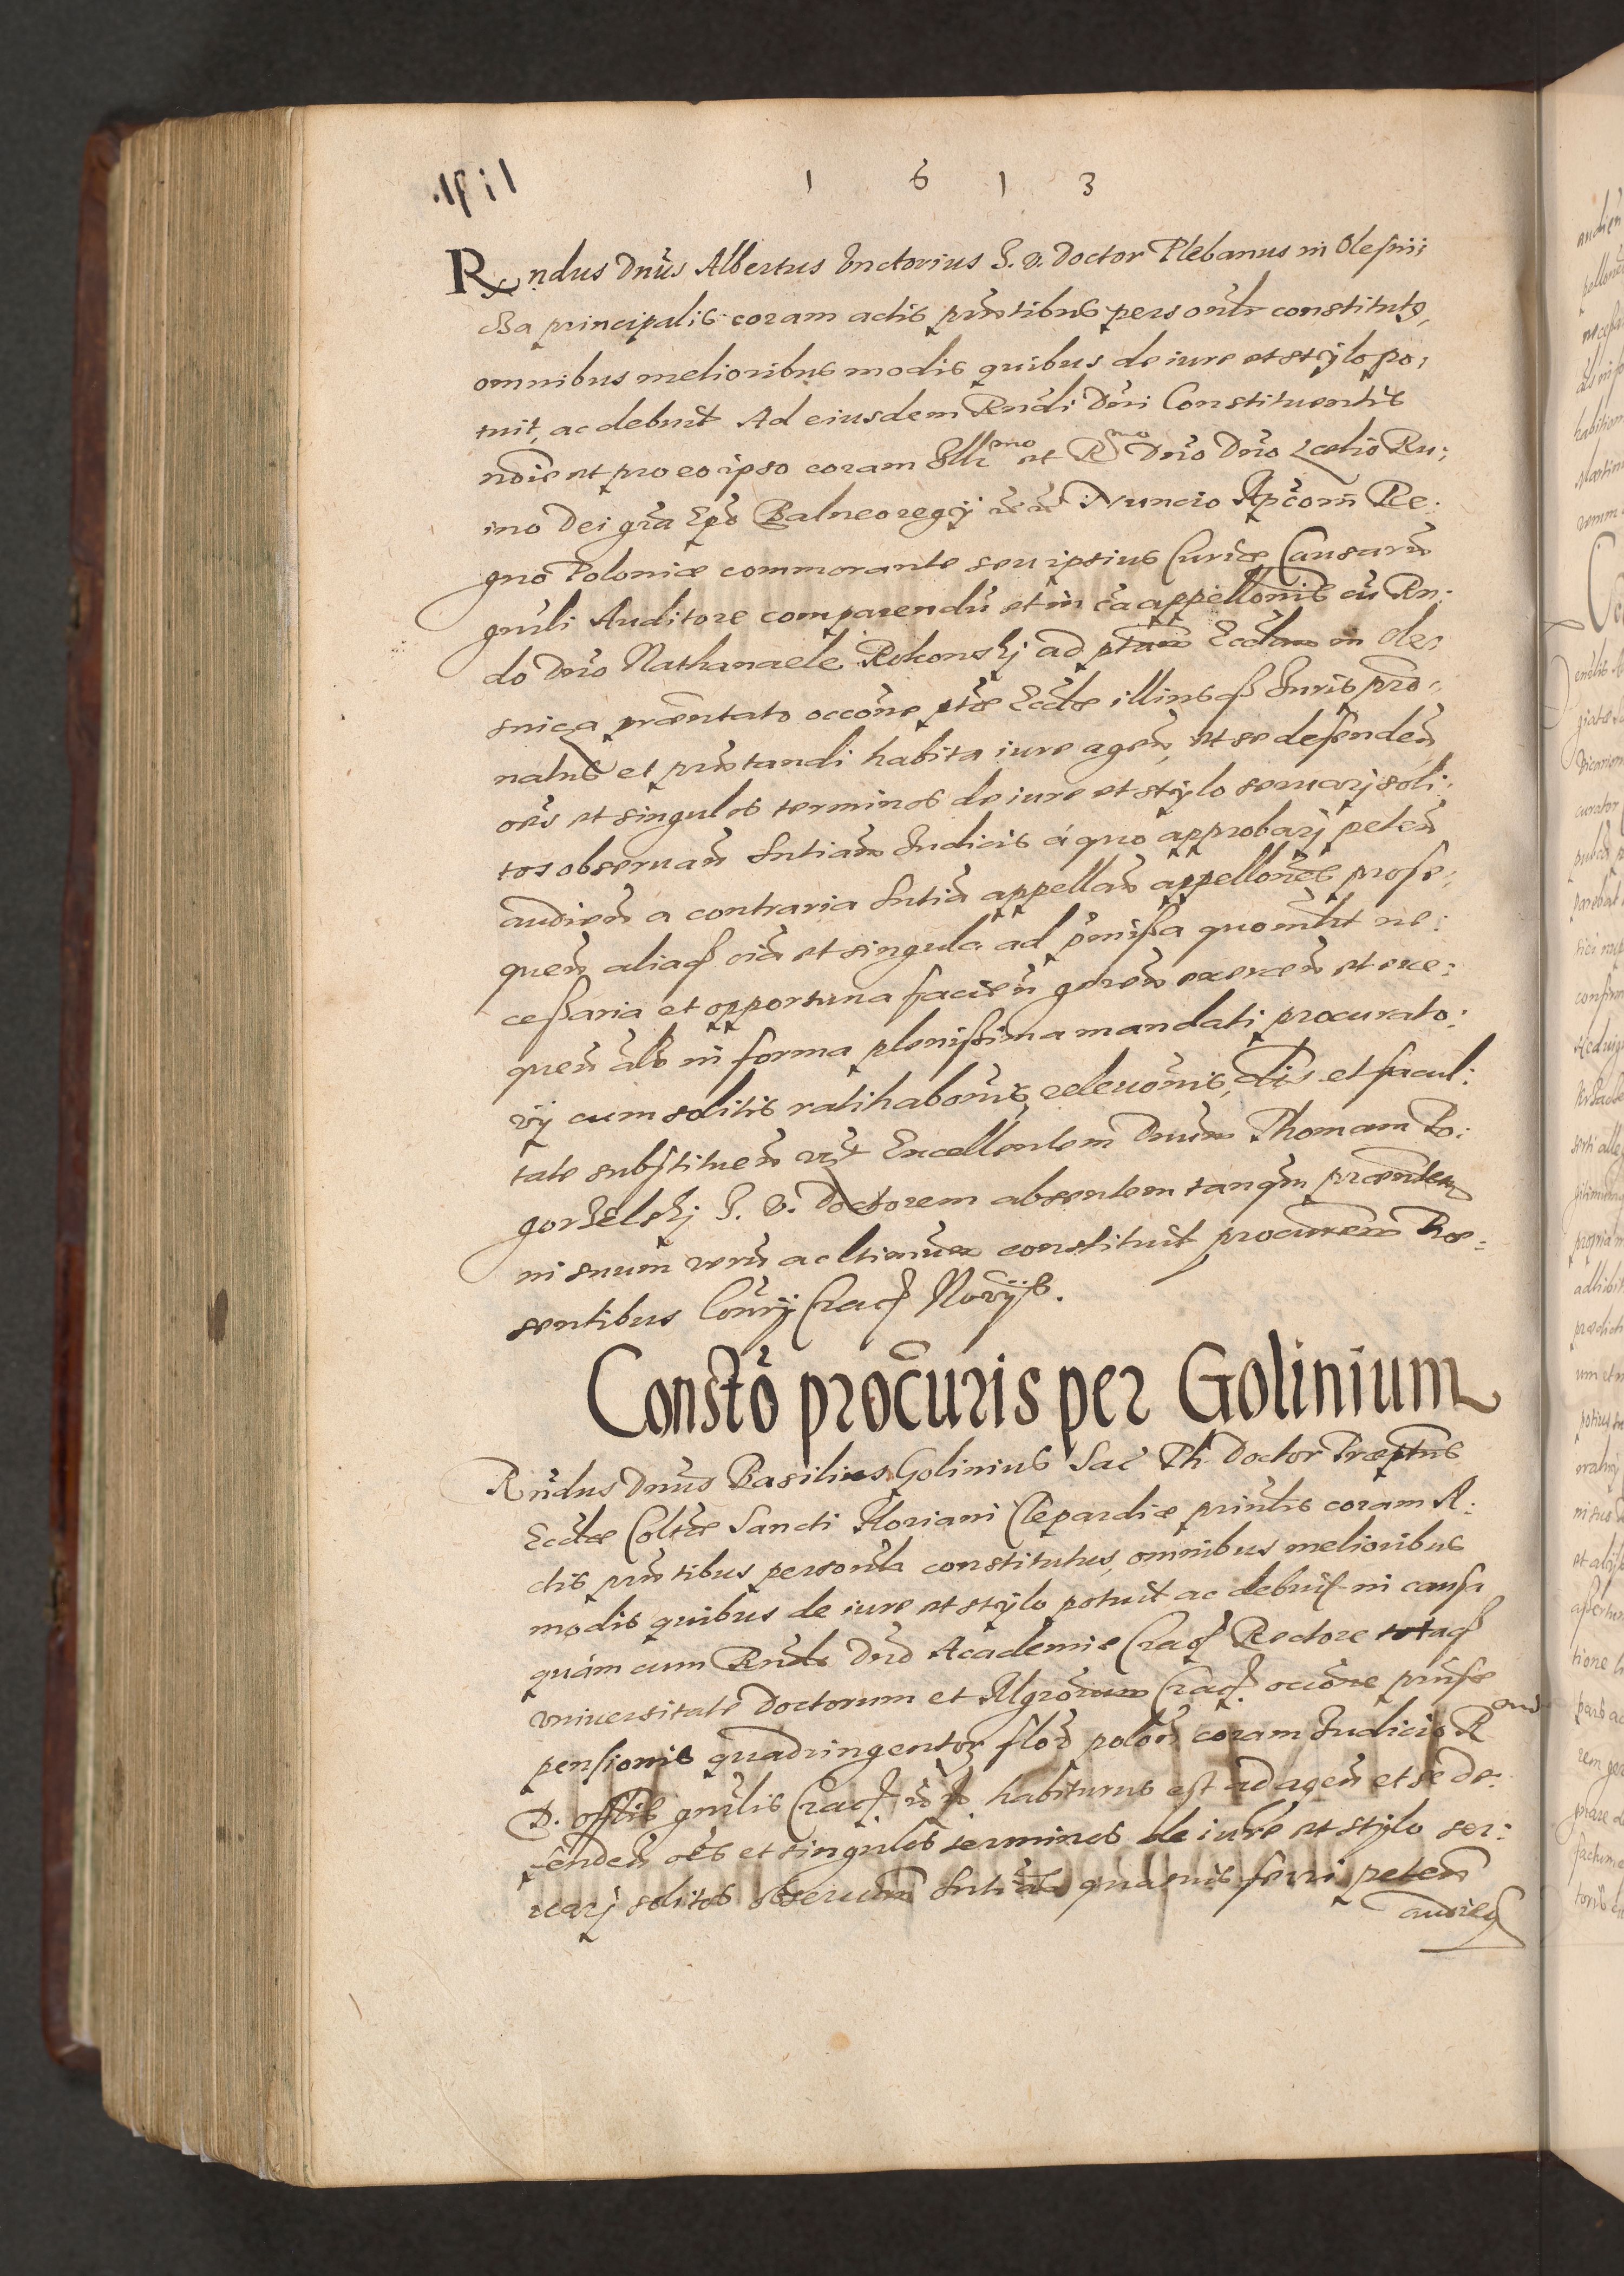 1 6 1 3
Rndus Dnus Albertus Vnctorius S. D. Doctor Plebanus in Olesnii
principalis coram actis pntibus personlr constituts,
omnibus melioribus modis quibus de iure et stylo po:
tuit, ac debuit Ad eiusdem Rndi Dni Constituentis
nole et pro eo ipso coram Illmo et Rmo Dno Dno Lælio Ru:
ino Dei gra Epo Balneoregij Nuncio Apcom Re:
gno Poloniæ commorante seu ipsius Curiæ Causarum
gnrli Auditore comparendu et in ca appellonis cu Rn:
do Dno Nathanaele Rokonskj ad ptam Eccliam in Ole:
snica præntato occone ptæ Eccliæ illiusq Iuris pro:
natus et pntandi habita iure agen, et se defenden
oes et singulos terminos de iure et stylo seruarj soli:
tos obseruan Sntiam Iudicis à quo approbarj peten
audien a contraria Sntia appellan appellones prose:
quen aliaq oia et singula ad pmissa quomlt ne:
cessaria et opportuna facien geren exercen et exe:
quen als in forma plenissima mandati procurato:
rij cum solitis ratihabonis, releuonis, et facul:
tate substituen Excellentem Dnum Thomam Ro:
gorzelskj I. V. Doctorem absentem tanqm præntem
in suum veru ac ltimum constituit procurem Præ:
sentibus Cracq Noryß.
Consto procuris per Golinium
Rndus Dnus Basilius Golinius Sac Th Doctor Præptus
Eccliæ Coltæ Sancti Floriani Clepardiæ prinlis coram A:
ctis pntibus personlr constitutus, omnibus melioribus
modis quibus de iure et stylo potuit ac debuit in causa
quam cum Rndo Dno Academiæ Cracq Rectore totaq
vniuersitate Doctorum et Mgrorum Cracq occone
pensionis quadringentor flor polon coram Iudicio R
D. offlis gnrlis Cracq habiturus est ad agen et se de:
fenden oes et singulos terminos de iure et stylo ser:
uarj solitos obseruan Sntiam quamuis ferri peten
audien